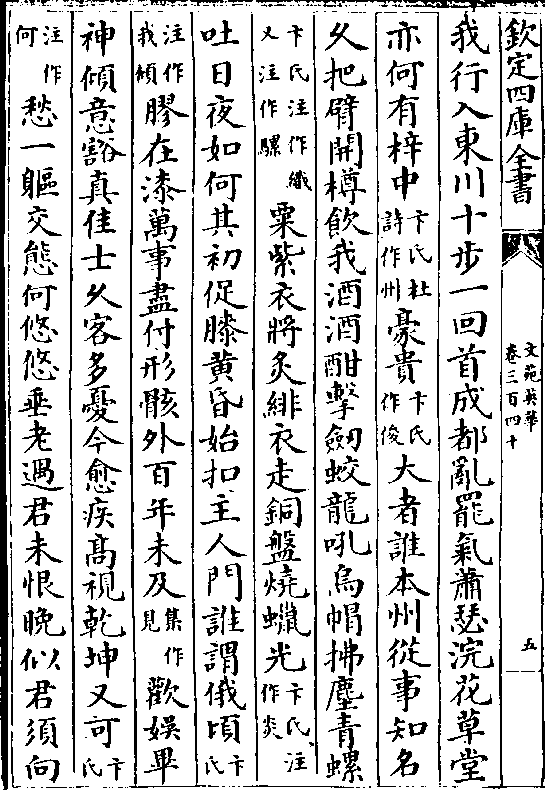 欽定四庫全書
文苑英華
卷三百四十
五
我行入東川十步一回首成都亂罷氣蕭瑟浣花草堂
亦何有梓中卞氏杜詩作州豪貴卞氏作俊大者誰本州從事知名
久把臂開樽飲我酒酒酣擊劒蛟龍吼烏帽拂塵青螺
卞氏注作織又注作騾粟紫衣將炙緋衣走銅盤燒蠟光卞氏注作炎
吐日夜如何其初促膝黄昏始扣主人門誰謂俄頃卞氏
注作我傾膠在漆萬事盡付形骸外百年未及集作見歡娛畢
神傾意豁真佳士久客多憂今愈疾髙視乾坤又可卞氏
注作何愁一軀交態何悠悠垂老遇君未恨晚似君須向